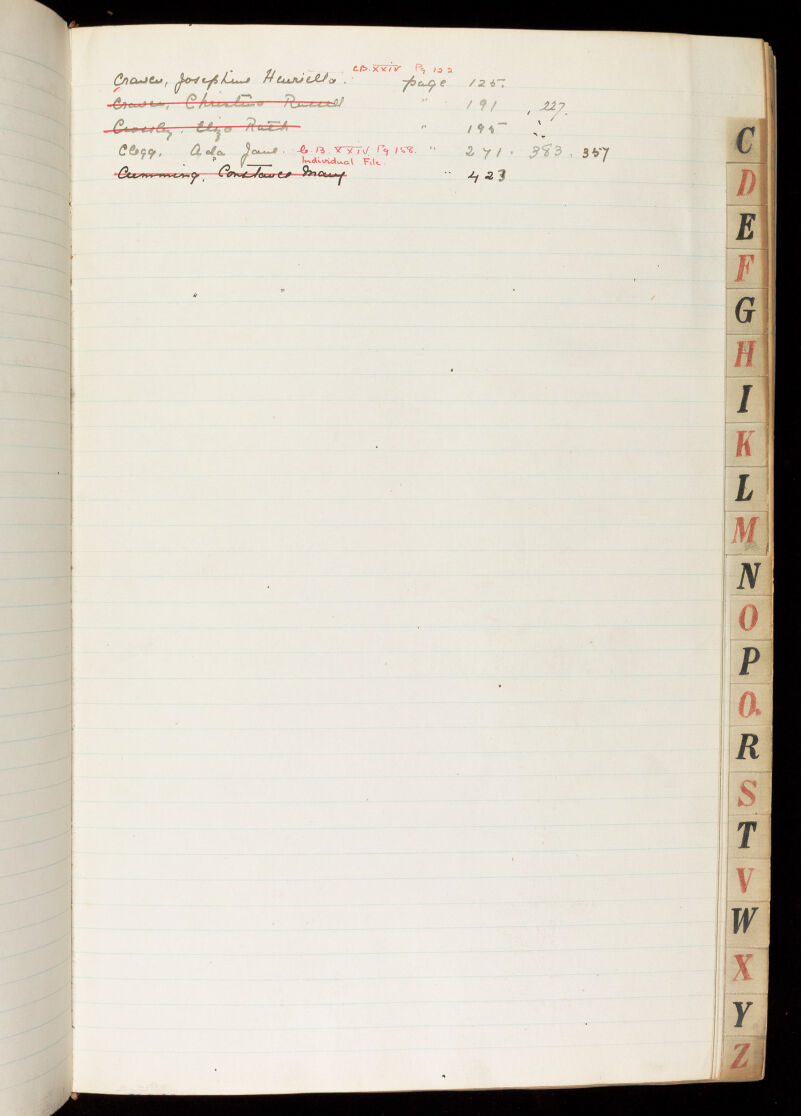 C.B. XXIV Pg 122
Craven, Josephine Henrietta. page 125.
Craven, Christina Russell " 191, 227.
Crossley, Eliza Ruth " 195
Clegg, Ada Jane. C.B. XXIV Pg 158. " 271. 383. 357
Individual File.
Cumming, Constance Mary " 423
C
D
E
F
G
H
I
K
L
M
N
O
P
Q
R
S
T
V
W
X
Y
Z